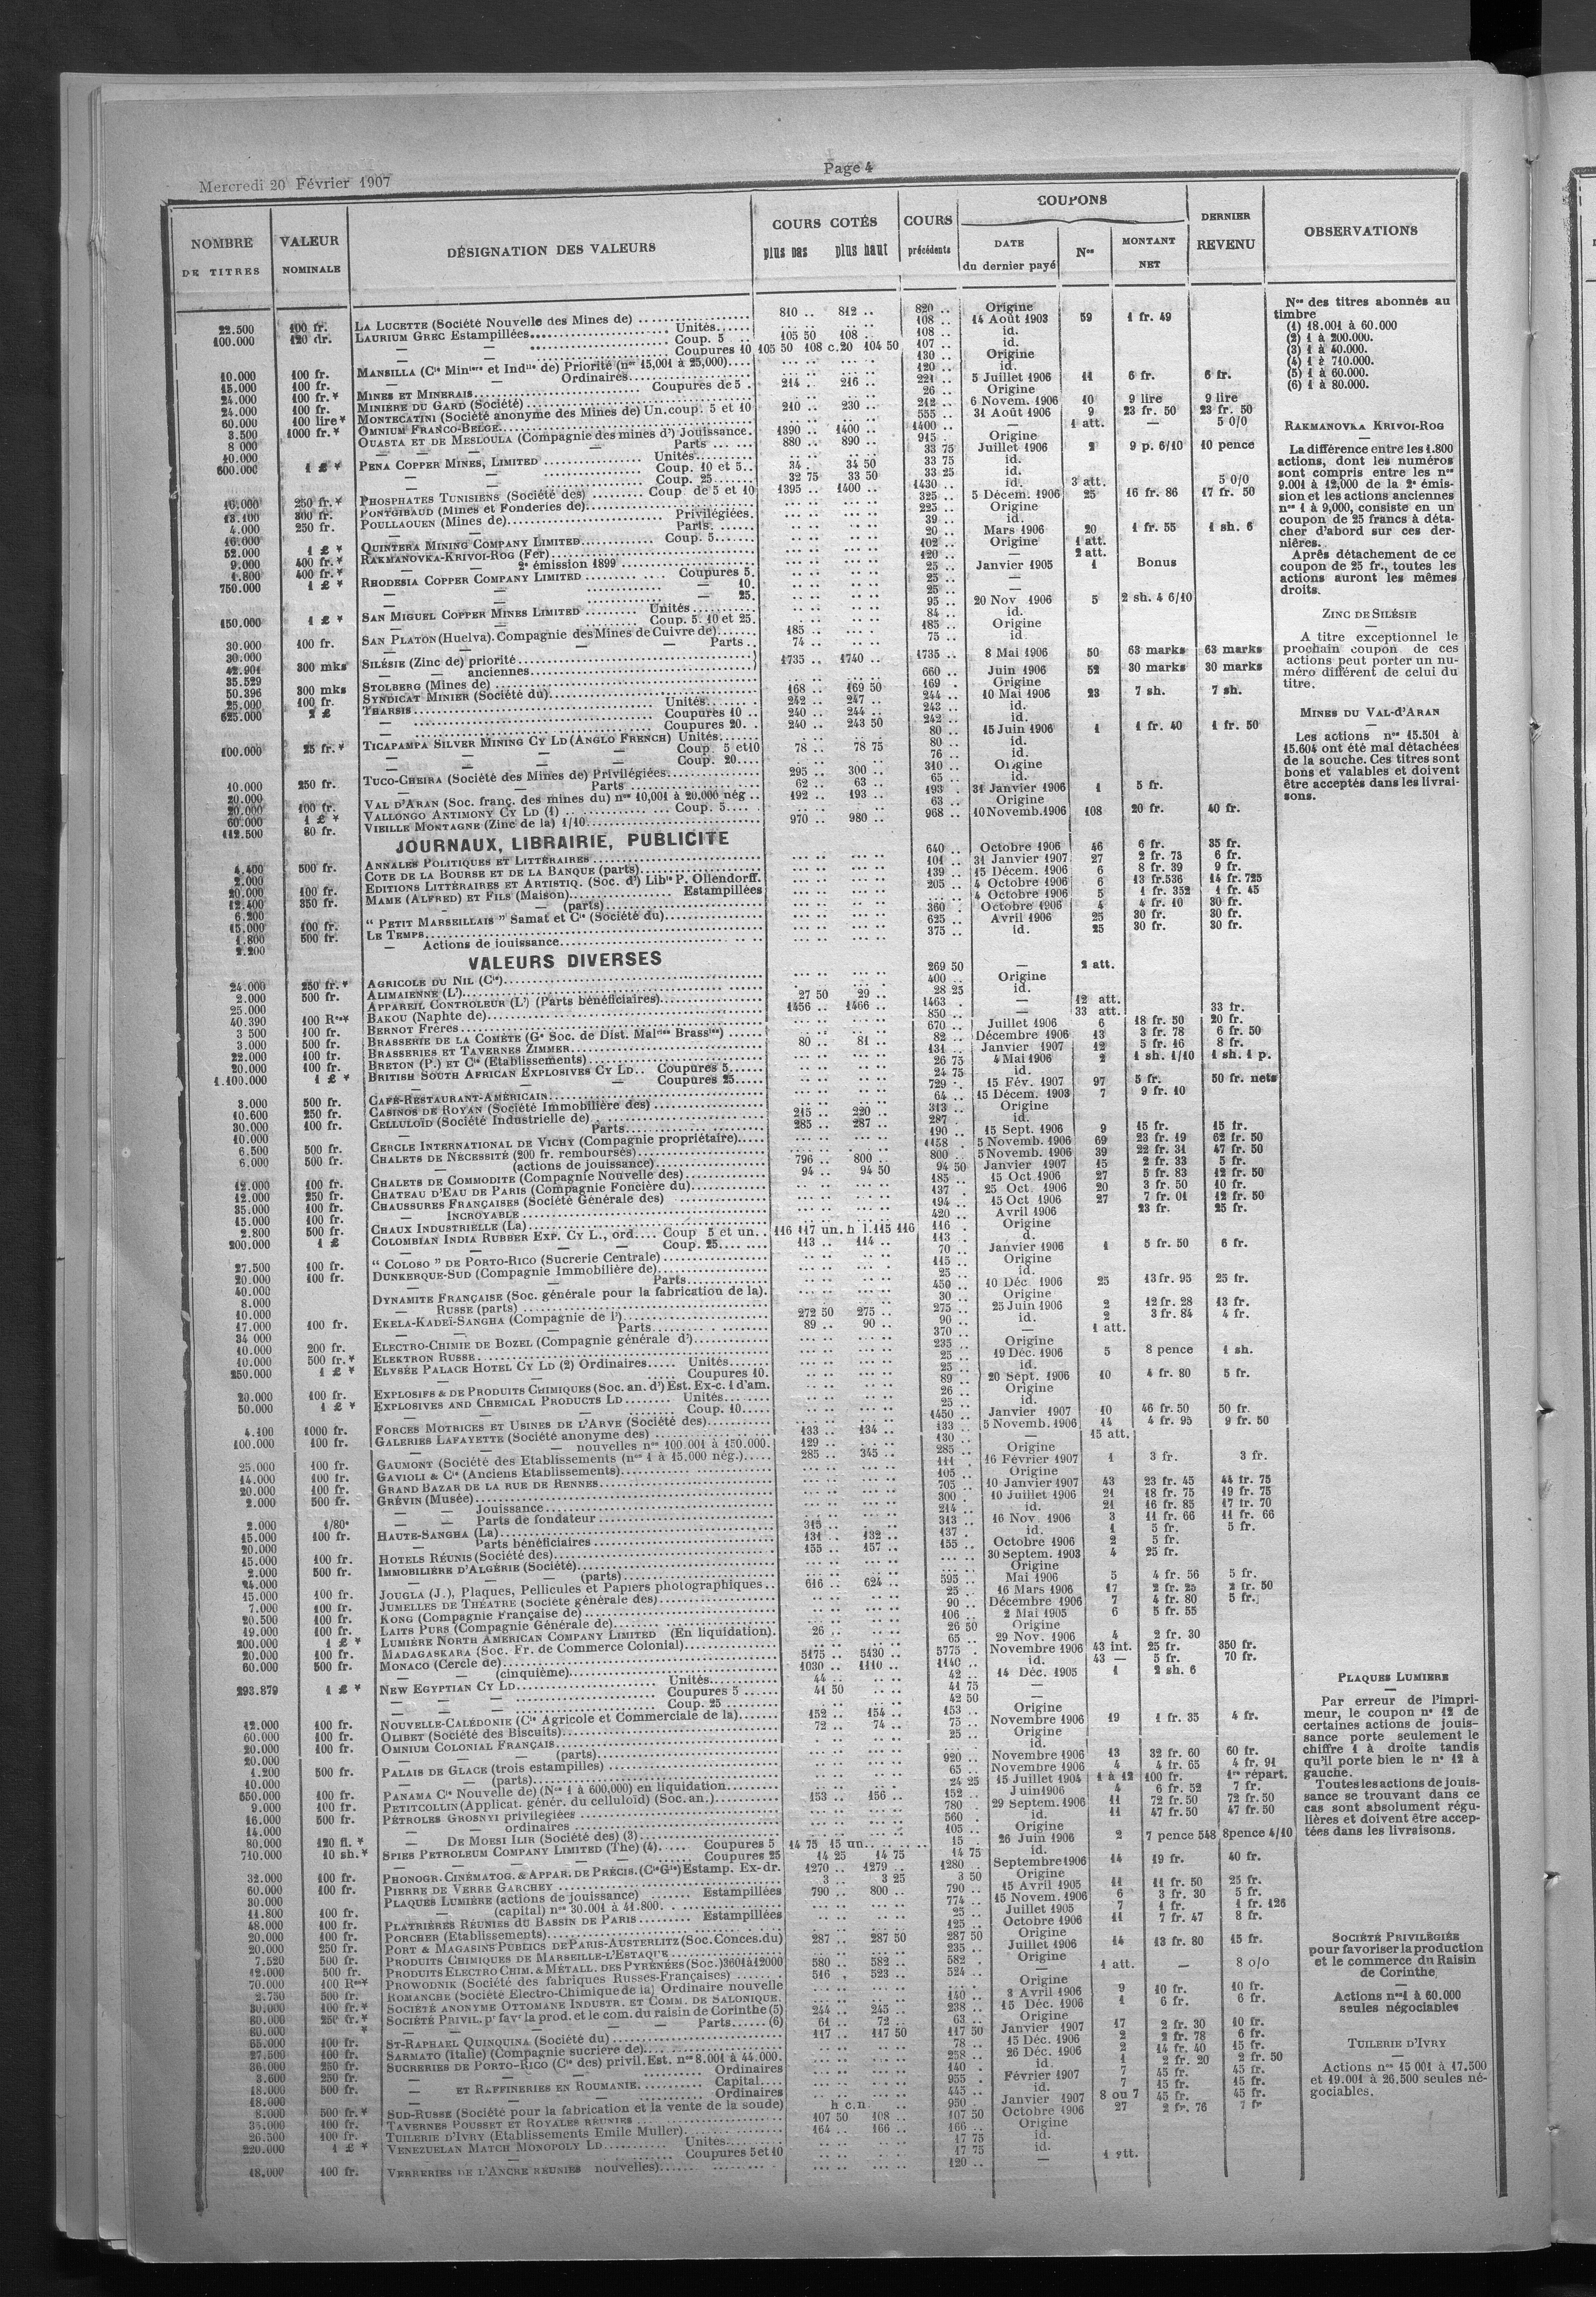 Mercredi 20 Février 1907
Page 4
NOMBRE DE TITRES
VALEUR NOMINALE
DÉSIGNATION DES VALEURS
COURS COTÉS
plus bas plus haut
COURS précédents
COUPONS
DATE du dernier payé
Nos
MONTANT NET
DERNIER REVENU
OBSERVATIONS
22.500 100 fr. LA LUCETTE (Société Nouvelle des Mines de) 810 .. 812 .. 820 .. Origine
100.000 120 dr. LAURIUM GREC Estampillées Unités 108 .. 14 Août 1903 59 1 fr. 49
— — Coup. 5 105 50 108 .. 108 .. id.
— — Coupures 10 105 50 108 c.20 104 50 107 .. id.
10.000 100 fr. MANSILLA (Cie Minière et Indlle de) Priorité (nos 15,001 à 25,000) 130 .. Origine
15.000 100 fr. — Ordinaires 120 .. id.
24.000 100 fr.* MINES ET MINERAIS Coupures de 5 214 .. 216 .. 221 .. 5 Juillet 1906 11 6 fr. 6 fr.
24.000 100 fr. MINIÈRE DU GARD (Société) 26 .. Origine
60.000 100 lire* MONTECATINI (Société anonyme des Mines de) Un. coup. 5 et 10 210 .. 230 .. 212 .. 6 Novem. 1906 10 9 lire 9 lire
3.500 1000 fr.* OMNIUM FRANCO-BELGE 555 .. 31 Août 1906 9 23 fr. 50 23 fr. 50
8 000 OUASTA ET DE MESLOULA (Compagnie des mines d') Jouissance 1390 .. 1400 .. 1400 .. — 1 att. — 5 0/0
10.000 — — — Parts 880 .. 890 .. 915 .. Origine
600.000 1 £ * PENA COPPER MINES, LIMITED Unités 33 75 Juillet 1906 2 9 p. 6/10 10 pence
— — Coup. 10 et 5 34 . 34 50 33 75 id.
— — Coup. 25 32 75 33 50 33 25 id.
16.000 250 fr.* PHOSPHATES TUNISIENS (Société des) Coup. de 5 et 10 1395 .. 1400 .. 1430 .. id. 3 att. 5 0/0
13.100 300 fr. PONTGIBAUD (Mines et Fonderies de) 325 .. 5 Décem. 1906 25 16 fr. 86 17 fr. 50
4.000 250 fr. POULLAOUEN (Mines de) Privilégiées 225 .. Origine
16.000 Parts 39 .. id.
52.000 1 £ * QUINTERA MINING COMPANY LIMITED Coup. 5 20 .. Mars 1906 20 1 fr. 55 1 sh. 6
9.000 400 fr.* RAKMANOVKA-KRIVOI-ROG (Fer) 102 .. Origine 1 att.
1.800 400 fr.* — 2e émission 1899 120 .. — 2 att.
750.000 1 £ * RHODESIA COPPER COMPANY LIMITED Coupures 5 25 .. Janvier 1905 1 Bonus
— — 10. 25 .. —
— — 25. 25 .. —
150.000 1 £ * SAN MIGUEL COPPER MINES LIMITED Unités 95 .. 20 Nov 1906 5 2 sh. 4 6/10
— Coup. 5. 10 et 25. 84 .. id.
30.000 100 fr. SAN PLATON (Huelva). Compagnie des Mines de Cuivre de) 185 .. 185 .. Origine
30.000 — — Parts 74 .. 75 .. id
42.901 300 mks SILÉSIE (Zinc de) priorité
35.529 — — anciennes 1735 .. 1740 .. 1735 .. 8 Mai 1906 50 63 marks 63 marks
50.396 300 mks STOLBERG (Mines de) 660 .. Juin 1906 52 30 marks 30 marks
25.000 100 fr. SYNDICAT MINIER (Société du) 168 .. 169 50 169 . Origine
625.000 2 £ THARSIS Unités 242 .. 247 .. 244 .. 10 Mai 1906 23 7 sh. 7 sh.
— Coupures 10 240 .. 244 .. 243 .. id.
— Coupures 20 240 .. 243 50 242 .. id.
100.000 25 fr.* TICAPAMPA SILVER MINING CY LD (ANGLO FRENCH) Unités 80 .. 15 Juin 1906 1 1 fr. 40 1 fr. 50
— — — Coup. 5 et 10 78 .. 78 75 80 .. id.
— — — Coup. 20 76 .. id.
10.000 250 fr. TUCO-CHEIRA (Société des Mines de) Privilégiées 295 .. 300 .. 310 .. Origine
20.000 — — Parts 62 .. 63 .. 65 .. id.
20.000 100 fr. VAL D'ARAN (Soc. franç. des mines du) nos 10,001 à 20.000 nég 192 .. 193 .. 193 . 31 Janvier 1906 1 5 fr.
60.000 1 £ * VALLONGO ANTIMONY CY LD (1) Coup. 5 63 .. Origine
112.500 80 fr. VIEILLE MONTAGNE (Zinc de la) 1/10 970 .. 980 .. 968 .. 10 Novemb. 1906 108 20 fr. 40 fr.
JOURNAUX, LIBRAIRIE, PUBLICITE
4.400 500 fr. ANNALES POLITIQUES ET LITTÉRAIRES 640 .. Octobre 1906 46 6 fr. 35 fr.
2.000 COTE DE LA BOURSE ET DE LA BANQUE (parts) 101 .. 31 Janvier 1907 27 2 fr. 73 6 fr.
20.000 100 fr. EDITIONS LITTÉRAIRES ET ARTISTIQ. (Soc. d') Libie P. Ollendorff. 139 .. 15 Décem. 1906 6 8 fr. 39 9 fr.
12.400 350 fr. MAME (ALFRED) ET FILS (Maison) Estampillées 205 .. 4 Octobre 1906 6 13 fr.536 14 fr. 725
6.200 — (parts) 4 Octobre 1906 5 1 fr. 352 1 fr. 45
15.000 100 fr. “ PETIT MARSEILLAIS ” Samat et Cie (Société du) 360 . Octobre 1906 4 4 fr. 10 30 fr.
1.800 500 fr. LE TEMPS 625 .. Avril 1906 25 30 fr. 30 fr.
2.200 — Actions de jouissance 375 .. id. 25 30 fr. 30 fr.
VALEURS DIVERSES
24.000 250 fr.* AGRICOLE DU NIL (Cie) 269 50 — 2 att.
2.000 500 fr. ALIMAIENNE (L') 400 .. Origine
25.000 APPAREIL CONTROLEUR (L') (Parts bénéficiaires) 27 50 29 .. 28 25 id.
40.390 100 Res* BAKOU (Naphte de) 1456 .. 1466 .. 1463 . — 12 att.
3 500 100 fr. BERNOT FRÈRES 850 .. — 33 att. 33 fr.
3.000 500 fr. BRASSERIE DE LA COMÈTE (Ge Soc. de Dist. Malries Brassies) 670 .. Juillet 1906 6 18 fr. 50 20 fr.
22.000 100 fr. BRASSERIES ET TAVERNES ZIMMER 82 .. Décembre 1906 13 3 fr. 78 6 fr. 50
20.000 100 fr. BRETON (P.) ET Cie (Etablissements) 80 .. 81 .. 131 .. Janvier 1907 12 5 fr. 16 8 fr.
1.100.000 1 £ * BRITISH SOUTH AFRICAN EXPLOSIVES CY LD Coupures 5 26 75 4 Mai 1906 2 1 sh. 1/10 1 sh. 1 p.
— — Coupures 25 24 75 id.
3.000 500 fr. CAFÉ-RESTAURANT-AMÉRICAIN 729 . 15 Fév. 1907 97 5 fr. 50 fr. nets
10.600 250 fr. CASINOS DE ROYAN (Société Immobilière des) 64 .. 15 Décem. 1903 7 9 fr. 10
30.000 100 fr. CELLULOÏD (Société Industrielle de) 215 .. 220 .. 313 .. Origine
10.000 — Parts 285 .. 287 .. 287 . id.
6.500 500 fr. CERCLE INTERNATIONAL DE VICHY (Compagnie propriétaire) 190 .. 15 Sept. 1906 9 15 fr. 15 fr.
6.000 500 fr. CHALETS DE NÉCESSITÉ (200 fr. remboursés) 1158 . 5 Novemb. 1906 69 23 fr. 19 62 fr. 50
— (actions de jouissance) 796 .. 800 .. 800 .. 5 Novemb. 1906 39 22 fr. 31 47 fr. 50
12.000 100 fr. CHALETS DE COMMODITE (Compagnie Nouvelle des) 94 .. 94 50 94 50 Janvier 1907 15 2 fr. 33 5 fr.
12.000 250 fr. CHATEAU D'EAU DE PARIS (Compagnie Foncière du) 185 .. 15 Oct. 1906 27 5 fr. 83 12 fr. 50
35.000 100 fr. CHAUSSURES FRANÇAISES (Société Générale des) 137 . 25 Oct. 1906 20 3 fr. 50 10 fr.
15.000 100 fr. — INCROYABLE 194 .. 15 Oct 1906 27 7 fr. 01 12 fr. 50
2.800 500 fr. CHAUX INDUSTRIELLE (La) 420 .. Avril 1906 23 fr. 25 fr.
200.000 1 £ COLOMBIAN INDIA RUBBER EXP. CY L., ord Coup 5 et un. 116 117 un. h l.115 116 116 . Origine
— — Coup. 25 113 .. 114 .. 113 . d.
27.500 100 fr. “ COLOSO ” DE PORTO-RICO (Sucrerie Centrale) 70 .. Janvier 1906 1 5 fr. 50 6 fr.
20.000 100 fr. DUNKERQUE-SUD (Compagnie Immobilière de) 115 .. Origine
40.000 — — Parts 25 .. id.
8.000 DYNAMITE FRANÇAISE (Soc. générale pour la fabrication de la). 450 .. 10 Déc. 1906 25 13 fr. 95 25 fr.
10.000 — RUSSE (parts) 30 .. Origine
17.000 100 fr. EKELA-KADEÏ-SANGHA (Compagnie de l') 272 50 275 .. 275 .. 25 Juin 1906 2 12 fr. 28 13 fr.
34 000 — — Parts 89 .. 90 .. 90 .. id. 2 3 fr. 84 4 fr.
10.000 200 fr. ELECTRO-CHIMIE DE BOZEL (Compagnie générale d') 370 .. — 1 att.
10.000 500 fr.* ELEKTRON RUSSE 235 .. Origine
250.000 1 £ * ELYSÉE PALACE HOTEL CY LD (2) Ordinaires Unités 25 .. 19 Déc. 1906 5 8 pence 1 sh.
— — Coupures 10. 25 .. id.
20.000 100 fr. EXPLOSIFS & DE PRODUITS CHIMIQUES (Soc. an. d') Est. Ex-c. 1 d'am. 89 .. 20 Sept. 1906 10 4 fr. 80 5 fr.
50.000 1 £ * EXPLOSIVES AND CHEMICAL PRODUCTS LD Unités 26 .. Origine
— — Coup. 10 25 .. id.
4.100 1000 fr. FORCES MOTRICES ET USINES DE L'ARVE (Société des) 1450 .. Janvier 1907 10 46 fr. 50 50 fr.
100.000 100 fr. GALERIES LAFAYETTE (Société anonyme des) 133 .. 134 .. 133 .. 5 Novemb. 1906 14 4 fr. 95 9 fr. 50
— — nouvelles nos 100.001 à 150.000. 129 .. 130 .. — 15 att.
25.000 100 fr. GAUMONT (Société des Etablissements (nos 1 à 15.000 nég.) 285 .. 345 .. 285 .. Origine
14.000 100 fr. GAVIOLI & Cie (Anciens Etablissements) 111 . 16 Février 1907 1 3 fr. 3 fr.
20.000 100 fr. GRAND BAZAR DE LA RUE DE RENNES 105 .. Origine
2.000 500 fr. GRÉVIN (Musée) 705 .. 10 Janvier 1907 43 23 fr. 45 44 fr. 75
— Jouissance 300 . 10 Juillet 1906 21 18 fr. 75 19 fr. 75
2.000 1/80e — Parts de fondateur 214 .. id. 21 16 fr. 85 17 fr. 70
15.000 100 fr. HAUTE-SANGHA (La) 315 .. 313 .. 16 Nov. 1906 3 11 fr. 66 11 fr. 66
20.000 — Parts bénéficiaires 131 .. 132 .. 137 . id. 1 5 fr. 5 fr.
15.000 100 fr. HOTELS RÉUNIS (Société des) 155 .. 157 .. 155 .. Octobre 1906 2 5 fr.
2.000 500 fr. IMMOBILIÈRE D'ALGÉRIE (Société) 30 Septem. 1903 4 25 fr.
24.000 — — (parts) Origine
15.000 100 fr. JOUGLA (J.), Plaques, Pellicules et Papiers photographiques 616 .. 624 .. 595 .. Mai 1906 5 4 fr. 56 5 fr.
7.000 100 fr. JUMELLES DE THÉATRE (Société générale des) 25 .. 16 Mars 1906 17 2 fr. 25 2 fr. 50
20.500 100 fr. KONG (Compagnie Française de) 90 .. Décembre 1906 7 4 fr. 80 5 fr.
19.000 100 fr. LAITS PURS (Compagnie Générale de) 106 .. 2 Mai 1905 6 5 fr. 55
200.000 1 £ * LUMIÈRE NORTH AMERICAN COMPANY LIMITED (En liquidation). 26 .. 26 50 Origine
20.000 100 fr. MADAGASKARA (Soc. Fr. de Commerce Colonial) 65 .. 29 Nov. 1906 4 2 fr. 30
60.000 500 fr. MONACO (Cercle de) 5175 .. 5430 .. 5775 . Novembre 1906 43 int. 25 fr. 350 fr.
— — (cinquième) 1030 .. 1110 .. 1140 .. id. 43 — 5 fr. 70 fr.
293.879 1 £ * NEW EGYPTIAN CY LD Unités 44 .. 42 .. 14 Déc. 1905 1 2 sh. 6
— — Coupures 5 41 50 41 75 —
— — Coup. 25 42 50 —
12.000 100 fr. NOUVELLE-CALÉDONIE (Cie Agricole et Commerciale de la) 152 .. 154 .. 153 .. Origine
60.000 100 fr. OLIBET (Société des Biscuits) 72 .. 74 .. 75 .. Novembre 1906 19 1 fr. 35 4 fr.
20.000 100 fr. OMNIUM COLONIAL FRANÇAIS 25 .. Origine
20.000 — — (parts) id.
1.200 500 fr. PALAIS DE GLACE (trois estampilles) 920 .. Novembre 1906 13 32 fr. 60 60 fr.
10.000 — — (parts) 65 .. Novembre 1906 4 4 fr. 65 4 fr. 91
550.000 100 fr. PANAMA Cie Nouvelle de) (Nos 1 à 600,000) en liquidation 24 25 15 Juillet 1904 1 à 12 100 fr. 1re répart.
9.000 100 fr. PETITCOLLIN (Applicat. génér. du celluloïd) (Soc. an.) 153 .. 156 .. 152 .. Juin 1906 4 6 fr. 52 7 fr.
16.000 500 fr. PÉTROLES GROSNYI privilégiées 780 . 29 Septem. 1906 11 72 fr. 50 72 fr. 50
14.000 — ordinaires 560 . id. 11 47 fr. 50 47 fr. 50
80.000 120 fl. * — DE MOESI ILIR (Société des) (3) 105 .. Origine
710.000 10 sh.* SPIES PETROLEUM COMPANY LIMITED (The) (4) Coupures 5 14 75 15 un. 15 . 26 Juin 1906 2 7 pence 548 8pence 4/10
— — Coupures 25 14 25 14 75 14 75 id.
32.000 100 fr. PHONOGR. CINÉMATOG. & APPAR. DE PRÉCIS. (Cie Gle) Estamp. Ex-dr. 1270 .. 1279 .. 1280 . Septembre 1906 14 19 fr. 40 fr.
60.000 100 fr. PIERRE DE VERRE GARCHEY 3 .. 3 25 3 50 Origine
30.000 PLAQUES LUMIÈRE (actions de jouissance) Estampillées 790 .. 800 .. 790 .. 15 Avril 1905 11 11 fr. 50 25 fr.
11.800 100 fr. — (capital) nos 30.001 à 41.800. 774 .. 15 Novem. 1906 6 3 fr. 30 5 fr.
48.000 100 fr. PLATRIÈRES RÉUNIES DU BASSIN DE PARIS Estampillées 25 .. Juillet 1905 7 1 fr. 1 fr. 126
20.000 100 fr. PORCHER (Etablissements) 125 .. Octobre 1906 11 7 fr. 47 8 fr.
20.000 250 fr. PORT & MAGASINS PUBLICS DE PARIS-AUSTERLITZ (Soc. Conces. du) 287 .. 287 50 287 50 Origine
7.520 500 fr. PRODUITS CHIMIQUES DE MARSEILLE-L'ESTAQUE 235 .. Juillet 1906 14 13 fr. 80 15 fr.
12.000 500 fr. PRODUITS ELECTRO CHIM. & MÉTALL. DES PYRÉNÉES (Soc.) 3601 à 12000 580 .. 582 .. 582 . Origine
70.000 100 Res* PROWODNIK (Société des fabriques Russes-Françaises) 516 . 523 .. 524 .. — 1 att. — 8 o/o
2.750 500 fr. ROMANCHE (Société Electro-Chimique de la) Ordinaire nouvelle Origine
30.000 100 fr.* SOCIÉTÉ ANONYME OTTOMANE INDUSTR. ET COMM. DE SALONIQUE. 140 .. 3 Avril 1906 9 10 fr. 10 fr.
80.000 250 fr.* SOCIÉTÉ PRIVIL. pr favr la prod. et le com. du raisin de Corinthe (5) 244 .. 245 .. 238 .. 15 Déc. 1906 1 6 fr. 6 fr.
60.000 * — — Parts (6) 61 .. 72 .. 63 .. Origine
65.000 100 fr. ST-RAPHAEL QUINQUINA (Société du) 117 .. 117 50 117 50 Janvier 1907 17 2 fr. 30 10 fr.
27.500 100 fr. SARMATO (Italie) (Compagnie sucrière de) 78 .. 15 Déc. 1906 2 2 fr. 78 6 fr.
36.000 250 fr. SUCRERIES DE PORTO-RICO (Cie des) privil. Est. nos 8.001 à 44.000. 258 .. 26 Déc. 1906 2 14 fr. 40 15 fr.
3.600 250 fr. — — Ordinaires 140 . id. 1 2 fr. 20 2 fr. 50
18.000 500 fr. — ET RAFFINERIES EN ROUMANIE Capital 955 . Février 1907 7 45 fr. 45 fr.
18.000 — — Ordinaires 445 .. id. 7 15 fr. 15 fr.
8.000 500 fr.* SUD-RUSSE (Société pour la fabrication et la vente de la soude) h c.n. 950 . Janvier 1907 8 ou 7 45 fr. 45 fr.
100 fr. TAVERNES POUSSET ET ROYALES RÉUNIES 107 50 108 .. 107 50 Octobre 1906 27 2 fr. 76 7 fr
26.500 100 fr. TUILERIE D'IVRY (Etablissements Emile Muller) 164 .. 166 .. 166 .. Origine
220.000 1 £ * VENEZUELAN MATCH MONOPOLY LD Unités 17 75 id.
— Coupures 5 et 10 17 75 id.
18.000 100 fr. VERRERIES DE L'ANCRE RÉUNIES nouvelles) 120 .. — 1 att.
Nos des titres abonnés au
timbre
(1) 18.001 à 60.000
(2) 1 à 200.000.
(3) 1 à 40.000.
(4) 1 à 710.000.
(5) 1 à 60.000.
(6) 1 à 80.000.
RAKMANOVKA KRIVOI-ROG
La différence entre les 1.800
actions, dont les numéros
sont compris entre les nos
9.001 à 12,000 de la 2e émis-
sion et les actions anciennes
nos 1 à 9,000, consiste en un
coupon de 25 francs à déta-
cher d'abord sur ces der-
nières.
Après détachement de ce
coupon de 25 fr., toutes les
actions auront les mêmes
droits.
ZINC DE SILÉSIE
A titre exceptionnel le
prochain coupon de ces
actions peut porter un nu-
méro différent de celui du
titre.
MINES DU VAL-d'ARAN
Les actions nos 15.501 à
15.604 ont été mal détachées
de la souche. Ces titres sont
bons et valables et doivent
être acceptés dans les livrai-
sons.
PLAQUES LUMIERE
Par erreur de l'impri-
meur, le coupon no 12 de
certaines actions de jouis-
sance porte seulement le
chiffre 1 à droite tandis
qu'il porte bien le no 12 à
gauche.
Toutes les actions de jouis-
sance se trouvant dans ce
cas sont absolument régu-
lières et doivent être accep-
tées dans les livraisons.
SOCIÉTÉ PRIVILÉGIÉE
pour favoriser la production
et le commerce du Raisin
de Corinthe
Actions nos 1 à 60.000
seules négociables
TUILERIE D'IVRY
Actions nos 15 001 à 17.500
et 19.001 à 26.500 seules né-
gociables.